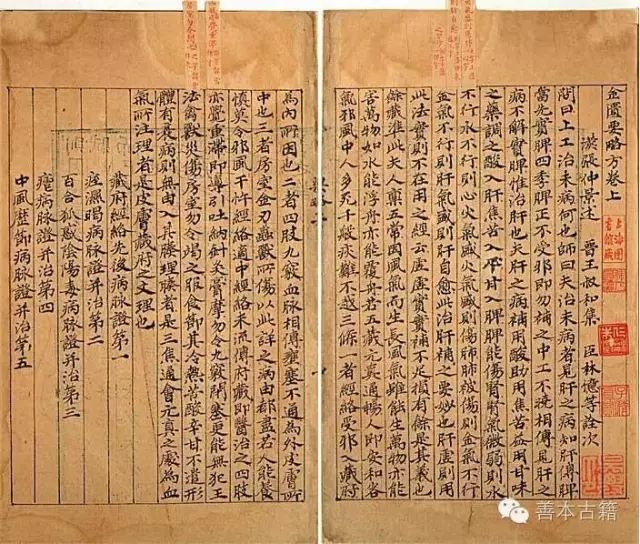 金匱要略方卷上
漢張仲景述 晉王叔和集 臣林億等詮次
問曰上工治未病何也師曰夫治未病者見肝之病知肝傳脾
當先實脾四季脾王不受邪即勿補之中工不曉相傳見肝之
病不解實脾惟治肝也夫肝之病補用酸助用焦苦益用甘味
之藥調之酸入肝焦苦入心甘入脾脾能傷腎腎氣微弱則水
不行水不行則心火氣盛心火氣盛則傷肺肺被傷則金氣不行
金氣不行則肝氣盛則肝自愈此治肝補之要妙也肝虛則用
此法實則不在用之經云虛虛實實補不足損有餘是其義也
餘藏準此夫人稟五常因風氣而生長風氣雖能生萬物亦能
害萬物如水能浮舟亦能覆舟若五藏元真通暢人即安和客
氣邪風中人多死千般疢難不越三條一者經絡受邪入藏府
為內所因也二者四肢九竅血脈相傳壅塞不通為外皮膚所
中也三者房室金刃蟲獸所傷以此詳之病由都盡若人能養
慎莫令邪風干忤經絡適中經絡未流傳府藏即醫治之四肢
亦覺重滯即導引吐納針灸膏摩勿令九竅閉塞更能無犯王
法禽獸災傷房室勿令竭之服食節其冷熱苦酸辛甘不遺形
體有衰病則無由入其腠理腠者是三焦通會元真之處為血
氣所注理者是皮膚藏府之文理也
藏府經絡先後病脈證第一
痓濕暍病脈證并治第二
百合狐惑陰陽毒病脈證并治第三
瘧病脈證并治第四
中風歷節病脈證并治第五
上海圖書館藏
善本古籍